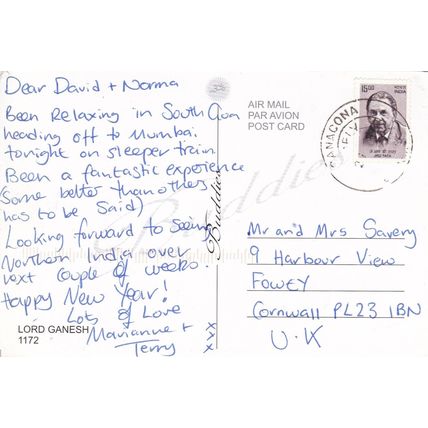 Dear David + Norma
Been Relaxing in South Goa
heading off to Mumbai
tonight on sleeper train
Been a fantastic experience
(Some better than others
has to be Said)
Looking forward to Seeing
Northern India over
next couple of weeks.
Happy New Year!
Lots of Love
Marianne +
Terry
x
x
x
LORD GANESH
1172
Buddies
Buddies
AIR MAIL
PAR AVION
POST CARD
15.00
INDIA
CANACONA
Mr and Mrs Savery
9 Harbour View
FOWEY
Cornwall PL23 1BN
U.K